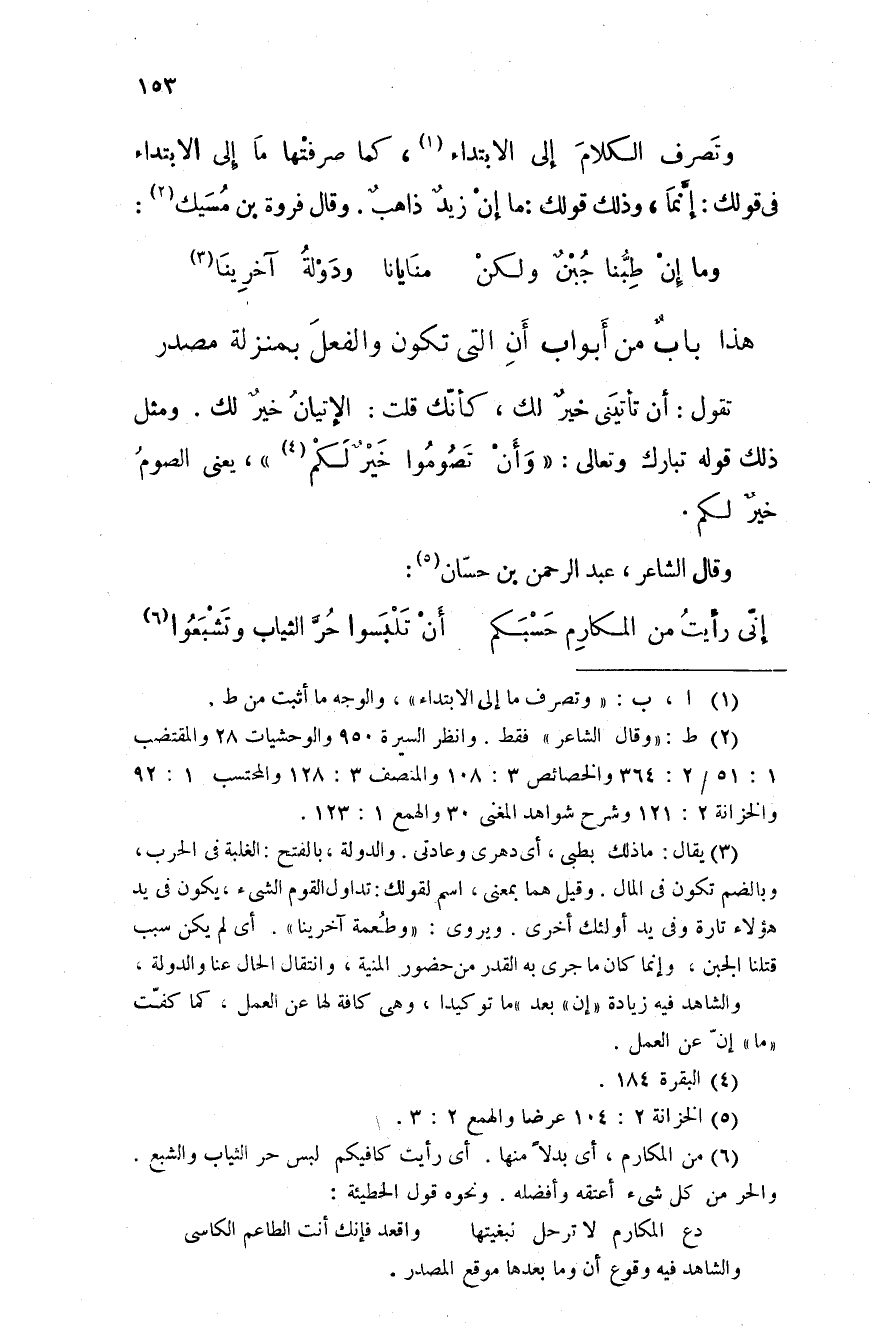 ١٥٣
وتَصرف الكلامَ إلى الابتداء(١) ، كما صرفتْها مَا إلى الابتداء
فى قولك : إنَّمَا ، وذلك قولك : ما إنْ زيدٌ ذاهبٌ . وقال فروة بن مُسَيك(٢) :
وما إِنْ طِبُّنا جُبْنٌ ولكنْ منَايانا ودَوْلةُ آخرِينَا(٣)
هذا بابٌ من أَبواب أَنِ التى تكون والفعلَ بمنزلة مصدر
تقول : أن تأتيَنى خيرٌ لك ، كأنّك قلت : الإتيانُ خيرٌ لك . ومثل
ذلك قوله تبارك وتعالى : « وَأَنْ تَصُومُوا خَيْرٌ لَكمْ(٤) » ، يعنى الصومُ
خيرٌ لكم .
وقال الشاعر ، عبد الرحمن بن حسّان(٥) :
إنّى رأيتُ من المكارِم حَسْبَكم أَنْ تَلْبَسوا حُرَّ الثياب وتَشْبَعُوا(٦)
(١) ا ، ب : « وتصرف ما إلى الابتداء» ، والوجه ما أثبت من ط .
(٢) ط : «وقال الشاعر » فقط . وانظر السيرة ٩٥٠ والوحشيات ٢٨ والمقتضب
١ : ٥١ / ٢ : ٣٦٤ والخصائص ٣ : ١٠٨ والمنصف ٣ : ١٢٨ والمحتسب ١ : ٩٢
والخزانة ٢ : ١٢١ وشرح شواهد المغنى ٣٠ والهمع ١ : ١٢٣ .
(٣) يقال : ماذلك بطبى ، أى دهرى وعادتى . والدولة ، بالفتح : الغلبة فى الحرب ،
وبالضم تكون فى المال . وقيل هما بمعنى ، اسم لقولك : تداول القوم الشىء ، يكون فى يد
هؤلاء تارة وفى يد أولئك أخرى . ويروى : «وطُعمة آخرينا» . أى لم يكن سبب
قتلنا الجبن ، وإنما كان ماجرى به القدر من حضور المنية ، وانتقال الحال عنا والدولة ،
والشاهد فيه زيادة «إن» بعد »ما توكيدا ، وهى كافة لها عن العمل ، كما كفّت
«ما» إنّ عن العمل .
(٤) البقرة ١٨٤ .
(٥) الخزانة ٢ : ١٠٤ عرضا والهمع ٢ : ٣ .
(٦) من المكارم ، أى بدلاً منها . أى رأيت كافيكم لبس حر الثياب والشبع .
والحر من كل شىء أعتقه وأفضله . ونحوه قول الحطيئة :
دع المكارم لا ترحل نبغيتها واقعد فإنك أنت الطاعم الكاسى
والشاهد فيه وقوع أن وما بعدها موقع المصدر .